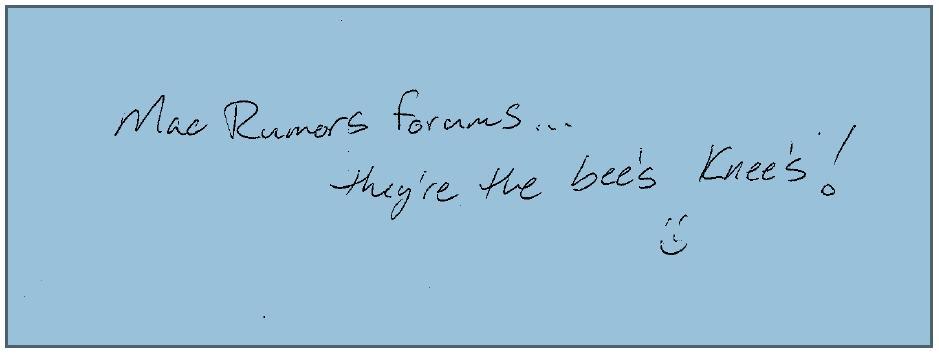 Mac Rumors forums...
they're the bee's knee's!